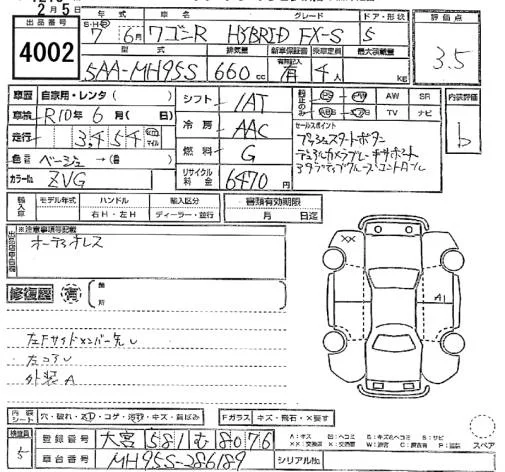 2月5日
出品番号
4002
年式 車名 グレード ドア・形状 評価点
7 6月 ワゴンR HYBRID FX-S 5 3.5
型式 排気量 新車保証書 乗車定員 最大積載量
5AA-MH95S 660cc 有 4人 kg
車歴 自家用・レンタ( )
車検 R10年6月( )日
走行 3,454
色 ベージュ→(色)
カラーNo. ZVG
シフト IAT
冷房 AAC
燃料 G
リサイクル料金 6470円
PS PW AW SR
TV ナビ
内装評価
b
セールスポイント
プッシュスタートボタン
デュアルカメラブレーキサポート
アダプティブクルーズコントロール
輸入車 モデル年式 ハンドル 輸入区分
右H・左H ディーラー・並行
書類有効期限
月 日迄
※注意事項号記載
オーディオレス
修復歴 有 箇所
左Fサイドメンバー先
左コア
外装A
××
A1
内装 シート 穴・破れ・ズレ・コゲ・汚れ・キズ・黄ばみ
Fガラス キズ・飛石・×要す
検査員
登録番号 大宮 581 む 8076
車台番号 MH95S-286189
シリアルNo.
スペア